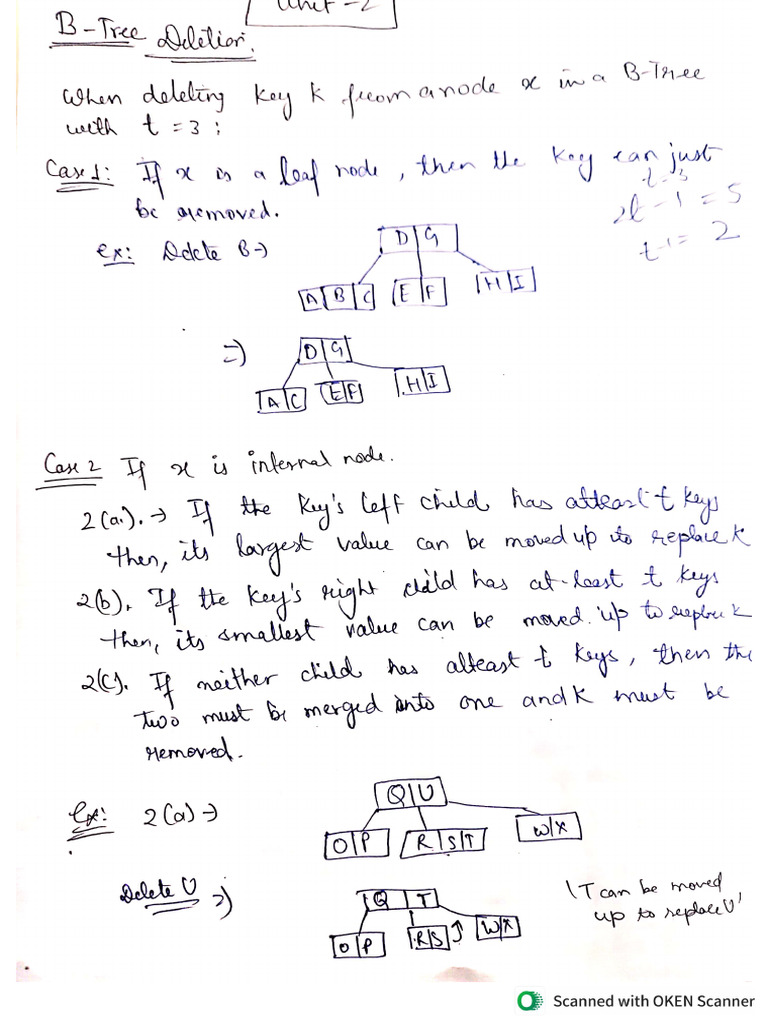 Unit-2
B-Tree Deletion.
When deleting key k from a node x in a B-Tree
with t = 3 ;
Case 1: If x is a leaf node, then the key can just
be removed.
t=3
2t-1 = 5
t-1 = 2
ex: Delete B →
D G
A B C E F H I
⇒
D G
A C E F H I
Case 2 If x is internal node.
2(a). → If the key's left child has atleast t keys
then, its largest value can be moved up to replace k
2(b). If the key's right child has at-least t keys
then, its smallest value can be moved up to replace k
2(c). If neither child has atleast t keys, then the
two must be merged into one and k must be
removed.
Ex: 2(a) →
Q U
O P R S T W X
Delete U ⇒
Q T
O P R S W X
(T can be moved
up to replace U'
Scanned with OKEN Scanner